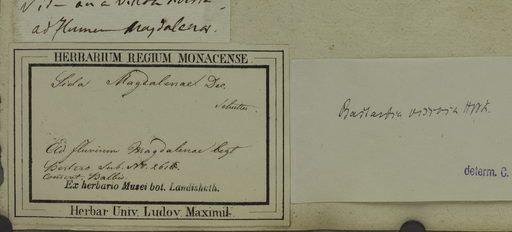 ad flumen Magdalenae.
HERBARIUM REGIUM MONACENSE
Sida Magdalenae Dec.
Ad fluvium Magdalenae legit
Bertero Sub. Nr. 2616.
Comunt. Balbis
Ex herbario Musei bot. Landishuth.
Herbar. Univ. Ludov. Maximil.
viscosa HBK
determ. C.